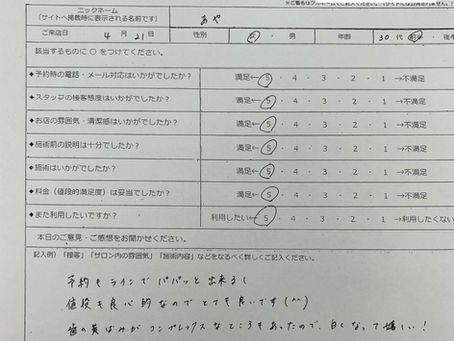 ニックネーム
（サイトへ掲載時に表示される名前です） あや
ご来店日 4 月 21 日 性別 女 ・ 男 年齢 30 代 前半 ・ 後半
該当するものに ○ をつけてください。
◆予約時の電話・メール対応はいかがでしたか？ 満足← 5 ・ 4 ・ 3 ・ 2 ・ 1 →不満足
◆スタッフの接客態度はいかがでしたか？ 満足← 5 ・ 4 ・ 3 ・ 2 ・ 1 →不満足
◆お店の雰囲気・清潔感はいかがでしたか？ 満足← 5 ・ 4 ・ 3 ・ 2 ・ 1 →不満足
◆施術前の説明は十分でしたか？ 満足← 5 ・ 4 ・ 3 ・ 2 ・ 1 →不満足
◆施術はいかがでしたか？ 満足← 5 ・ 4 ・ 3 ・ 2 ・ 1 →不満足
◆料金（値段的満足度）は妥当でしたか？ 満足← 5 ・ 4 ・ 3 ・ 2 ・ 1 →不満足
◆また利用したいですか？ 利用したい← 5 ・ 4 ・ 3 ・ 2 ・ 1 →利用したくない
本日のご意見・ご感想をお聞かせください。
記入例）「接客」「サロン内の雰囲気」「施術内容」などをなるべく詳しくご記入ください。
予約もラインでパパッと出来るし
値段も良心的なのでとても良いです(^^)
歯の黄ばみがコンプレックスなところもあったので、白くなって嬉しい！